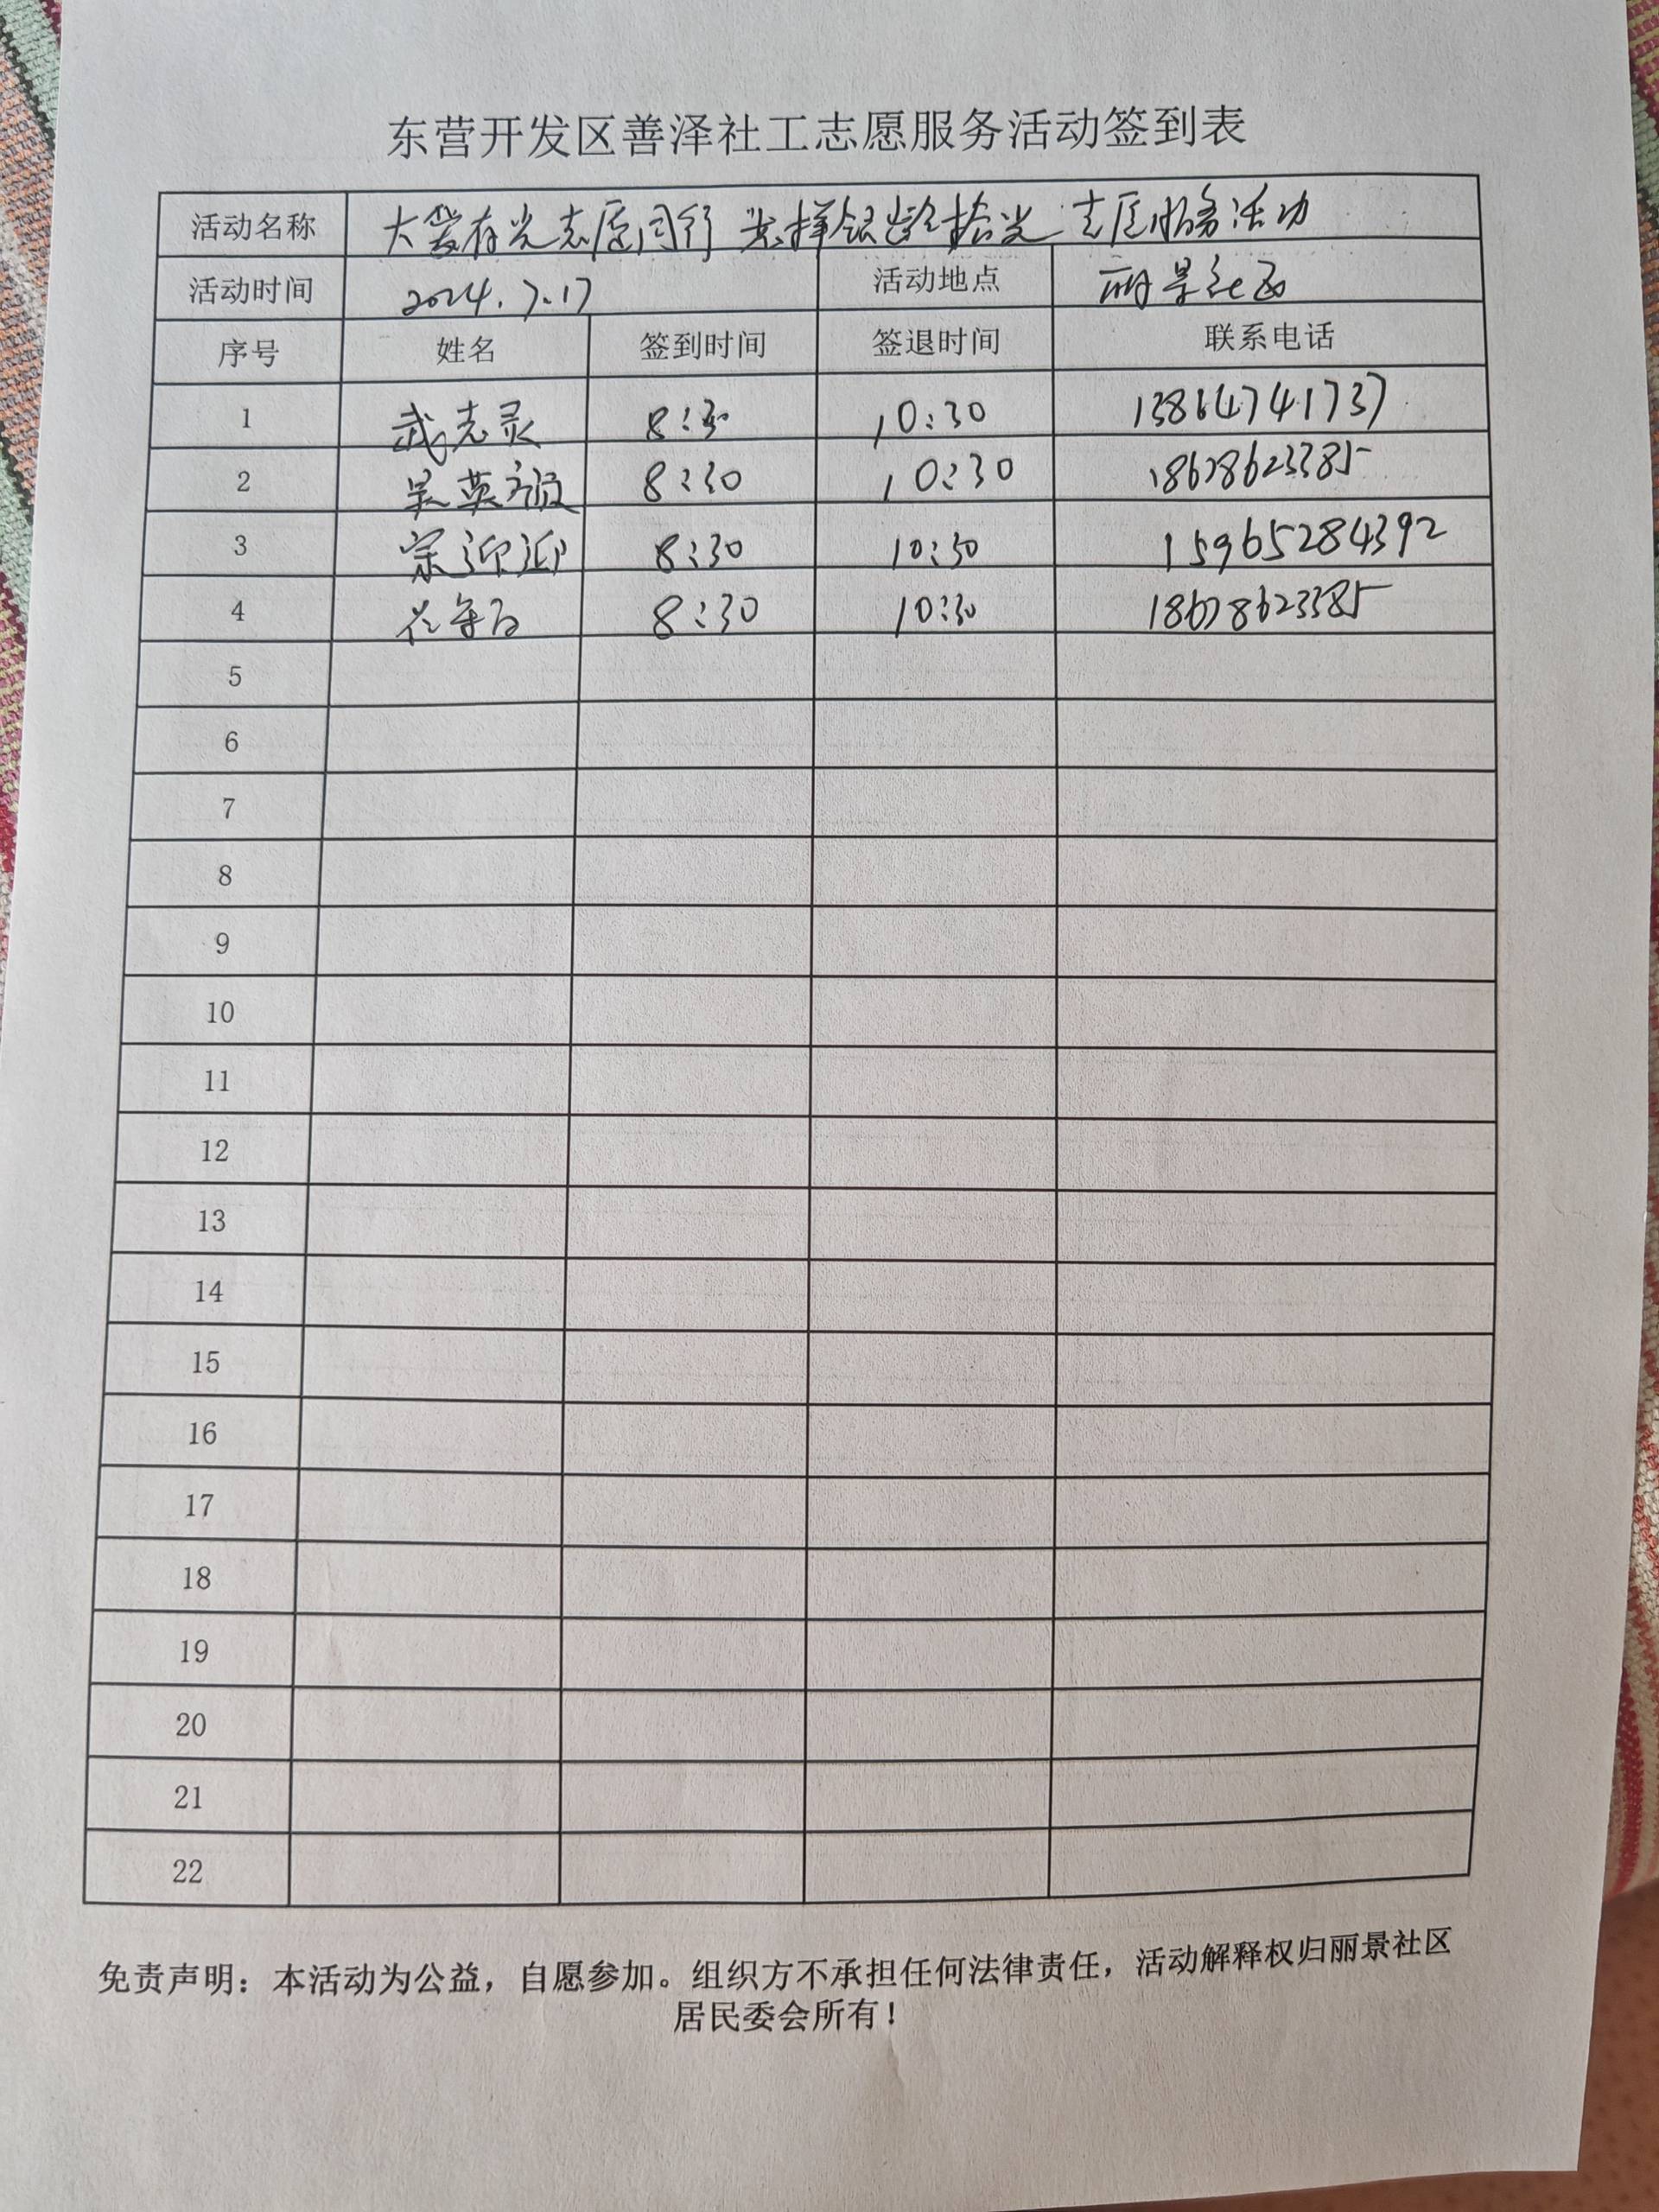 东营开发区善泽社工志愿服务活动签到表
活动名称 大爱有光志愿同行 光样银龄拾光 志愿服务活动
活动时间 2024.7.17 活动地点 丽景社区
序号 姓名 签到时间 签退时间 联系电话
1 武志灵 8:30 10:30 13864741737
2 吴英 8:30 10:30 18678623385
3 宗迎迎 8:30 10:30 15965284392
4 8:30 10:30 18678623385
5
6
7
8
9
10
11
12
13
14
15
16
17
18
19
20
21
22
免责声明：本活动为公益，自愿参加。组织方不承担任何法律责任，活动解释权归丽景社区
居民委会所有！